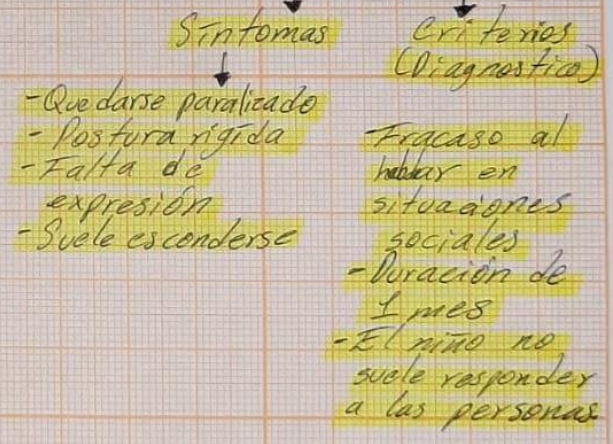 Síntomas
- Quedarse paralizado
- Postura rígida
- Falta de
expresión
- Suele esconderse
Criterios
(Diagnostico)
- Fracaso al
hablar en
situaciones
sociales
- Duración de
1 mes
- El niño no
suele responder
a las personas